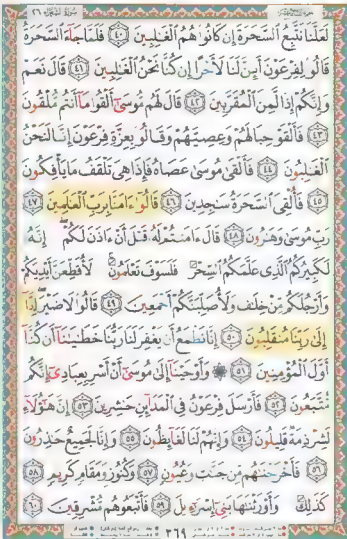 لَعَلَّنَا نَتَّبِعُ السَّحَرَةَ إِن كَانُوا۟ هُمُ الْغَٰلِبِينَ ٤٠ فَلَمَّا جَآءَ السَّحَرَةُ
قَالُوا۟ لِفِرْعَوْنَ أَئِنَّ لَنَا لَأَجْرًا إِن كُنَّا نَحْنُ الْغَٰلِبِينَ ٤١ قَالَ نَعَمْ
وَإِنَّكُمْ إِذًا لَّمِنَ الْمُقَرَّبِينَ ٤٢ قَالَ لَهُم مُّوسَىٰٓ أَلْقُوا۟ مَآ أَنتُم مُّلْقُونَ
٤٣ فَأَلْقَوْا۟ حِبَالَهُمْ وَعِصِيَّهُمْ وَقَالُوا۟ بِعِزَّةِ فِرْعَوْنَ إِنَّا لَنَحْنُ
الْغَٰلِبُونَ ٤٤ فَأَلْقَىٰ مُوسَىٰ عَصَاهُ فَإِذَا هِىَ تَلْقَفُ مَا يَأْفِكُونَ
٤٥ فَأُلْقِىَ السَّحَرَةُ سَٰجِدِينَ ٤٦ قَالُوٓا۟ ءَامَنَّا بِرَبِّ الْعَٰلَمِينَ ٤٧
رَبِّ مُوسَىٰ وَهَٰرُونَ ٤٨ قَالَ ءَامَنتُمْ لَهُۥ قَبْلَ أَنْ ءَاذَنَ لَكُمْ إِنَّهُۥ
لَكَبِيرُكُمُ الَّذِى عَلَّمَكُمُ السِّحْرَ فَلَسَوْفَ تَعْلَمُونَ لَأُقَطِّعَنَّ أَيْدِيَكُمْ
وَأَرْجُلَكُم مِّنْ خِلَٰفٍ وَلَأُصَلِّبَنَّكُمْ أَجْمَعِينَ ٤٩ قَالُوا۟ لَا ضَيْرَ إِنَّآ
إِلَىٰ رَبِّنَا مُنقَلِبُونَ ٥٠ إِنَّا نَطْمَعُ أَن يَغْفِرَ لَنَا رَبُّنَا خَطَٰيَٰنَآ أَن كُنَّآ
أَوَّلَ الْمُؤْمِنِينَ ٥١ ۞ وَأَوْحَيْنَآ إِلَىٰ مُوسَىٰٓ أَنْ أَسْرِ بِعِبَادِىٓ إِنَّكُم
مُّتَّبَعُونَ ٥٢ فَأَرْسَلَ فِرْعَوْنُ فِى الْمَدَآئِنِ حَٰشِرِينَ ٥٣ إِنَّ هَٰٓؤُلَآءِ
لَشِرْذِمَةٌ قَلِيلُونَ ٥٤ وَإِنَّهُمْ لَنَا لَغَآئِظُونَ ٥٥ وَإِنَّا لَجَمِيعٌ حَٰذِرُونَ
٥٦ فَأَخْرَجْنَٰهُم مِّن جَنَّٰتٍ وَعُيُونٍ ٥٧ وَكُنُوزٍ وَمَقَامٍ كَرِيمٍ ٥٨
كَذَٰلِكَ وَأَوْرَثْنَٰهَا بَنِىٓ إِسْرَٰٓءِيلَ ٥٩ فَأَتْبَعُوهُم مُّشْرِقِينَ ٦٠
٣٦٩